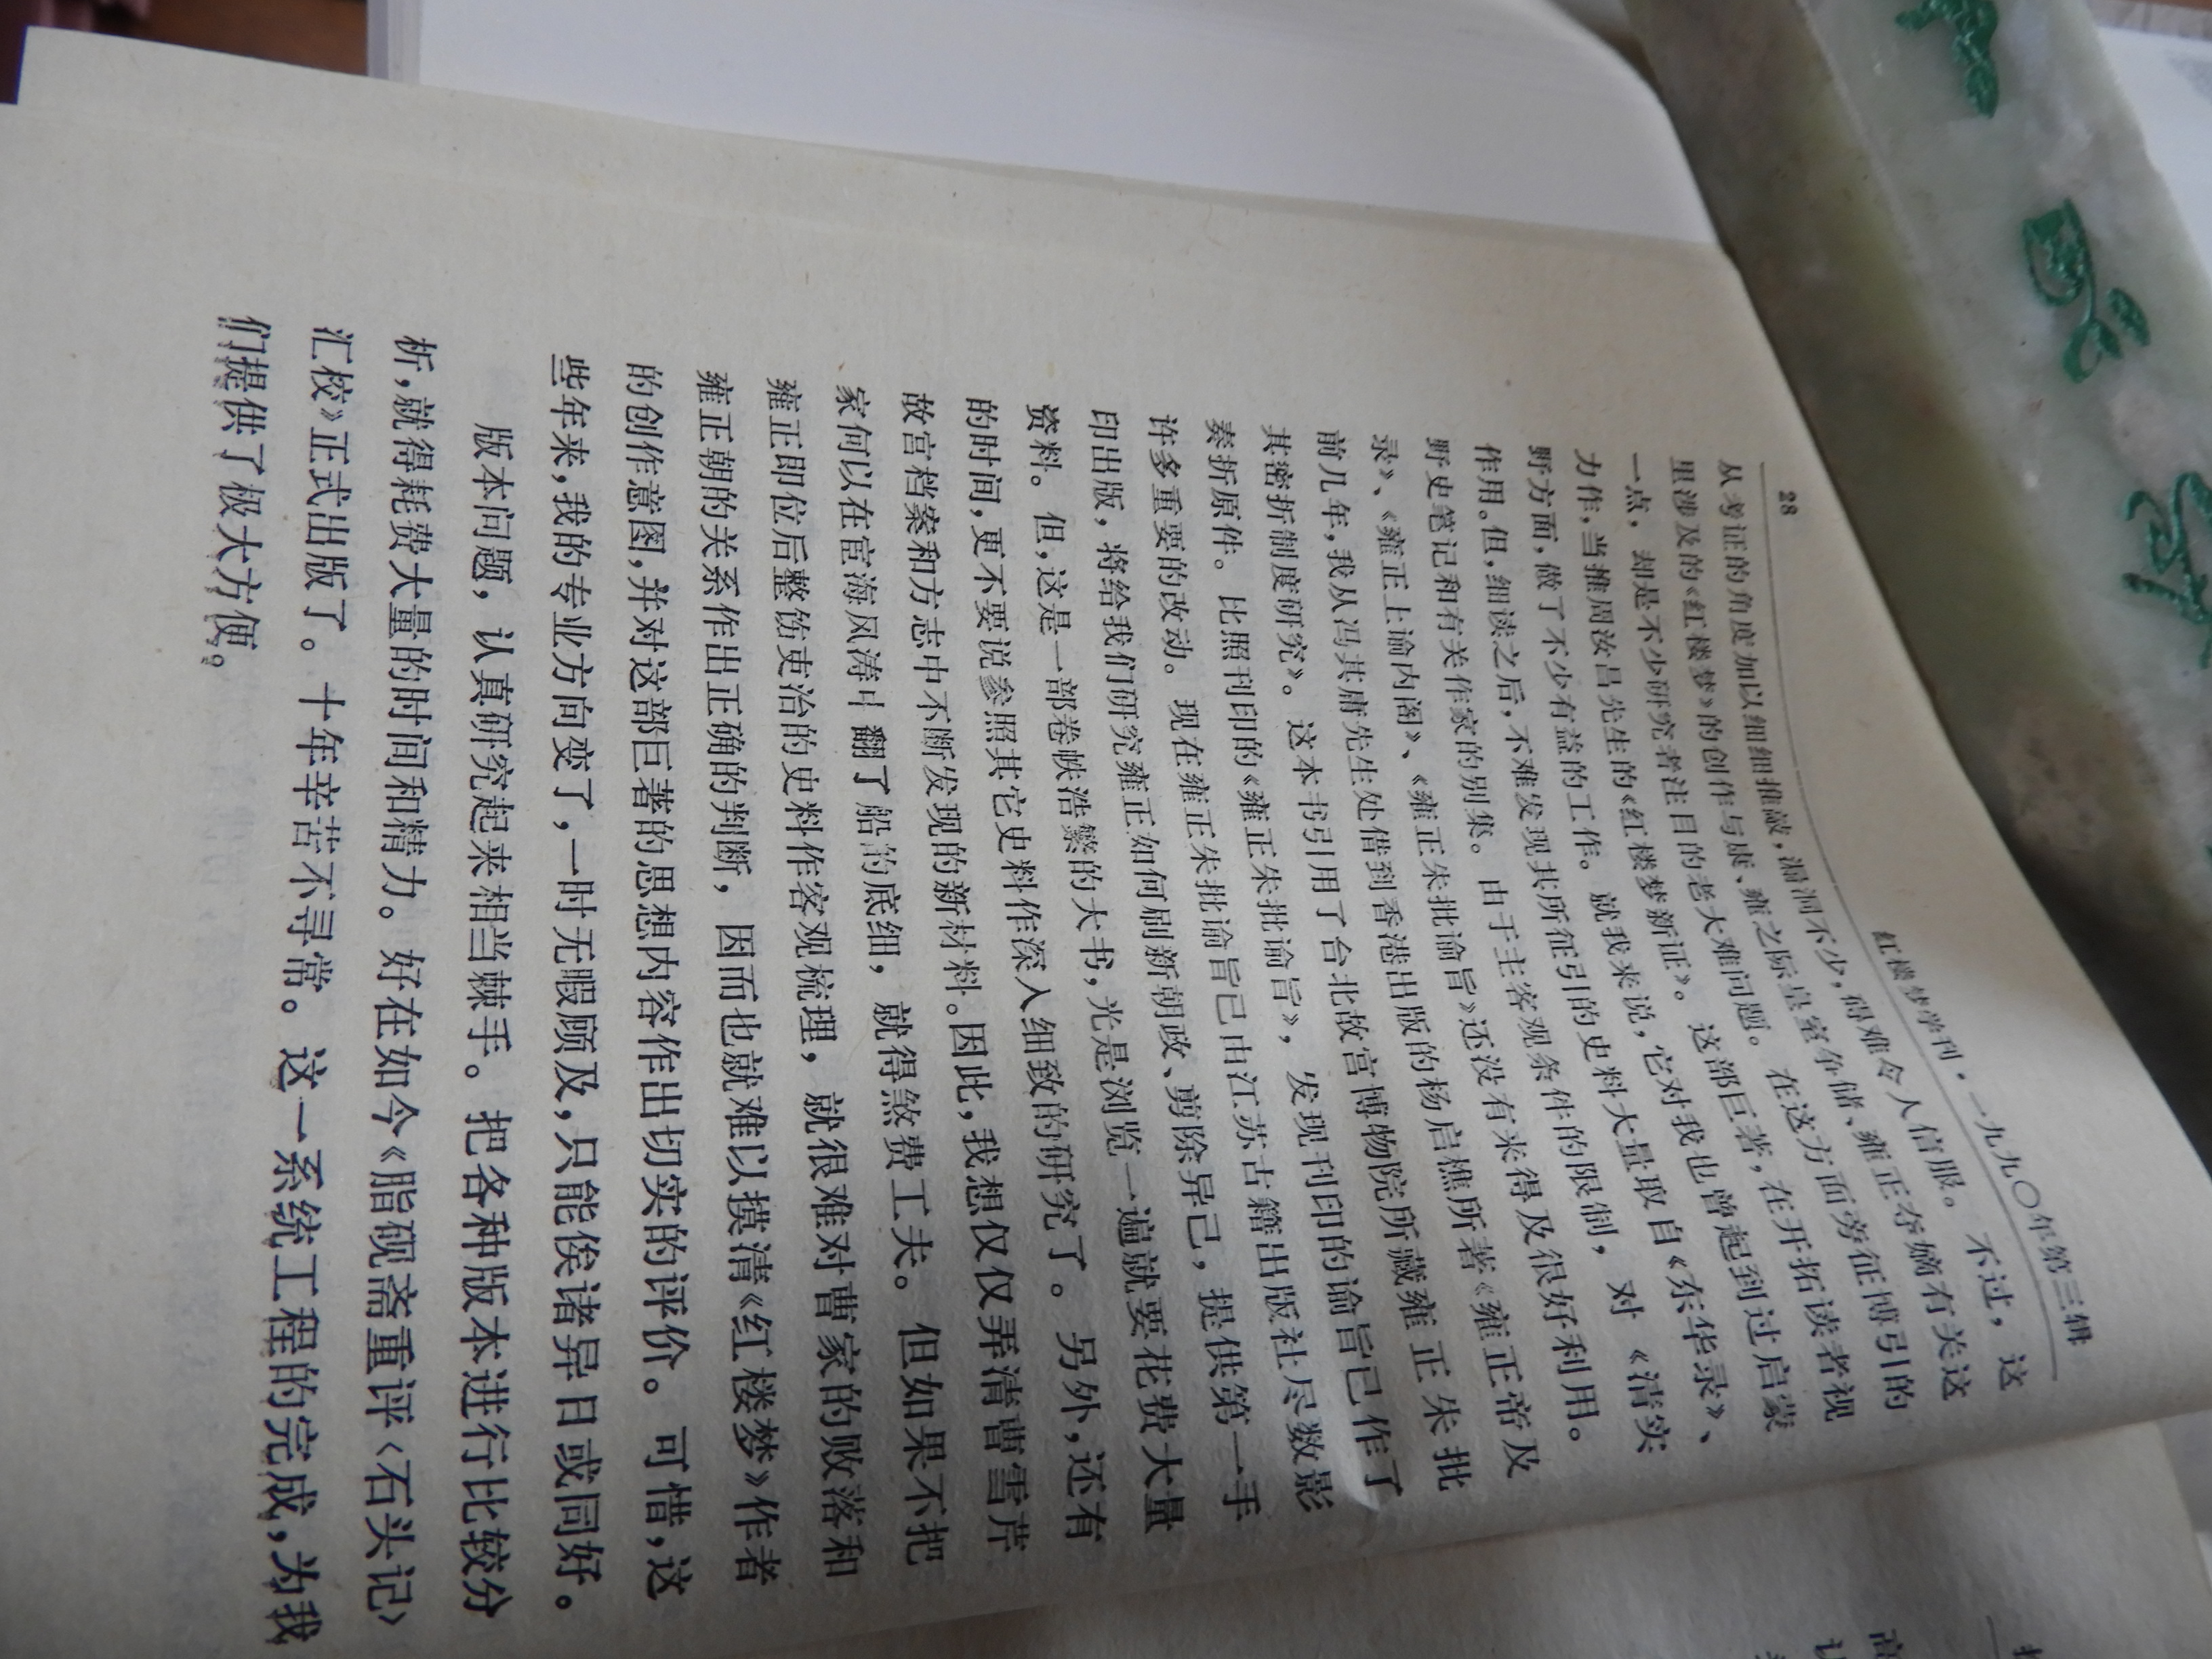 28
红楼梦学刊·一九九〇年第三辑
从考证的角度加以细细推敲，漏洞不少，碍难令人信服。不过，这
里涉及的《红楼梦》的创作与康、雍之际皇室争储、雍正夺嫡有关这
一点，却是不少研究者注目的老大难问题。在这方面旁征博引的
力作，当推周汝昌先生的《红楼梦新证》。这部巨著，在开拓读者视
野方面，做了不少有益的工作。就我来说，它对我也曾起到过启蒙
作用。但，细读之后，不难发现其所征引的史料大量取自《东华录》、
野史笔记和有关作家的别集。由于主客观条件的限制，对《清实
录》、《雍正上谕内阁》、《雍正朱批谕旨》还没有来得及很好利用。
前几年，我从冯其庸先生处借到香港出版的杨启樵所著《雍正帝及
其密折制度研究》。这本书引用了台北故宫博物院所藏雍正朱批
奏折原件。比照刊印的《雍正朱批谕旨》，发现刊印的谕旨已作了
许多重要的改动。现在雍正朱批谕旨已由江苏古籍出版社尽数影
印出版，将给我们研究雍正如何刷新朝政、剪除异己，提供第一手
资料。但，这是一部卷帙浩繁的大书，光是浏览一遍就要花费大量
的时间，更不要说参照其它史料作深入细致的研究了。另外，还有
故宫档案和方志中不断发现的新材料。因此，我想仅仅弄清曹雪芹
家何以在宦海风涛中翻了船的底细，就得煞费工夫。但如果不把
雍正即位后整饬吏治的史料作客观梳理，就很难对曹家的败落和
雍正朝的关系作出正确的判断，因而也就难以摸清《红楼梦》作者
的创作意图，并对这部巨著的思想内容作出切实的评价。可惜，这
些年来，我的专业方向变了，一时无暇顾及，只能俟诸异日或同好。
版本问题，认真研究起来相当棘手。把各种版本进行比较分
析，就得耗费大量的时间和精力。好在如今《脂砚斋重评〈石头记〉
汇校》正式出版了。十年辛苦不寻常。这一系统工程的完成，为我
们提供了极大方便。